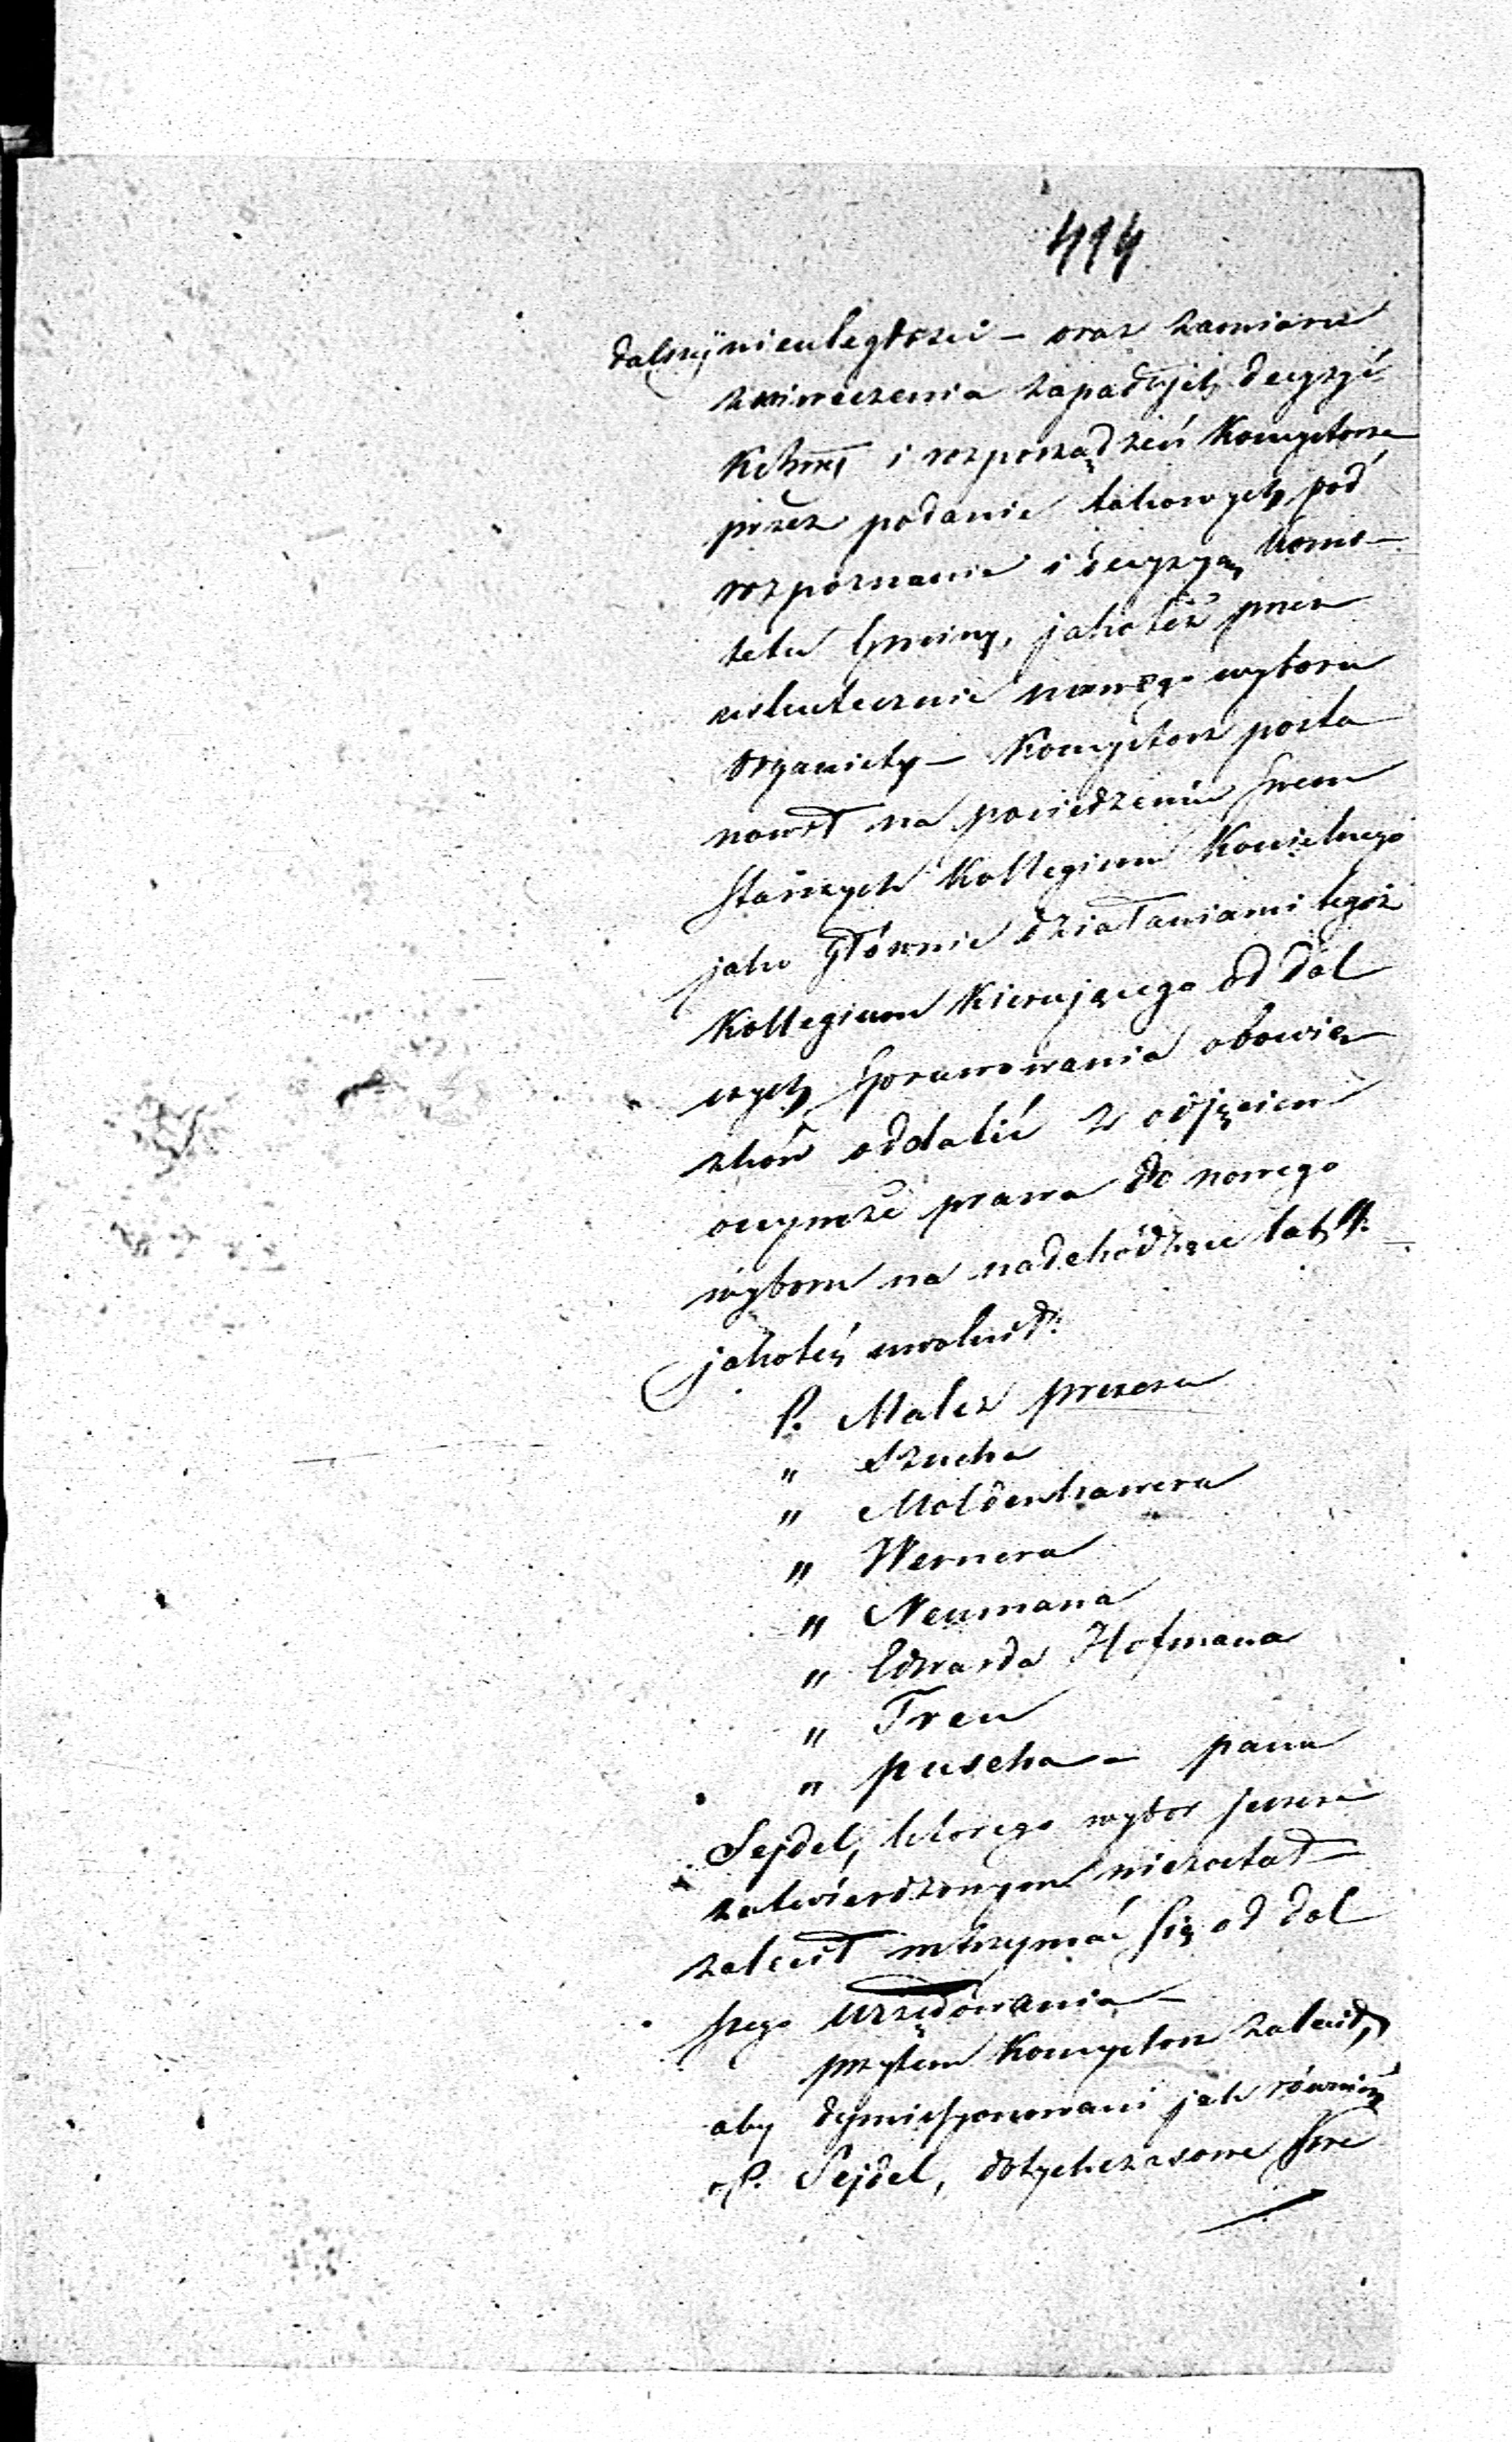 414
dalszéj nieuległości – oraz zamiaru
zniweczenia zapadłych decyzyi
i rozporządzeń Konsystorza
przez podanie takowych pod
rozpoznanie i decyzyą Komi-
tetu Gminy, jakoteż przez
uskutecznie nowego wyboru
Organisty – Konsystorz posta
nowił na posiedzeniu swem
Starszych Kollegium Kościelnego
jako głównie działaniami tegoż
Kollegium kierującego od dal
szych sprawowania obowią
zków oddalić z odjęciem
onymże prawa do nowego
wyboru na nadchodzące lat
jakoteż uwolnił:
P. Malcz prezesa
" Szucha
" Moldenhawera
" Wernera
" Neumana
" Edwarda Hofmana
" Treu
" Puscha – pana
Sejdel, którego wybor jeszcze
zatwierdzonym niezostał –
zalecił wstrzymać się od dal
szego urzędowania –
przytem Konsystorz zalecił,
aby dymissyonowani jak również
P. Sejdel, dotychczasowe swe